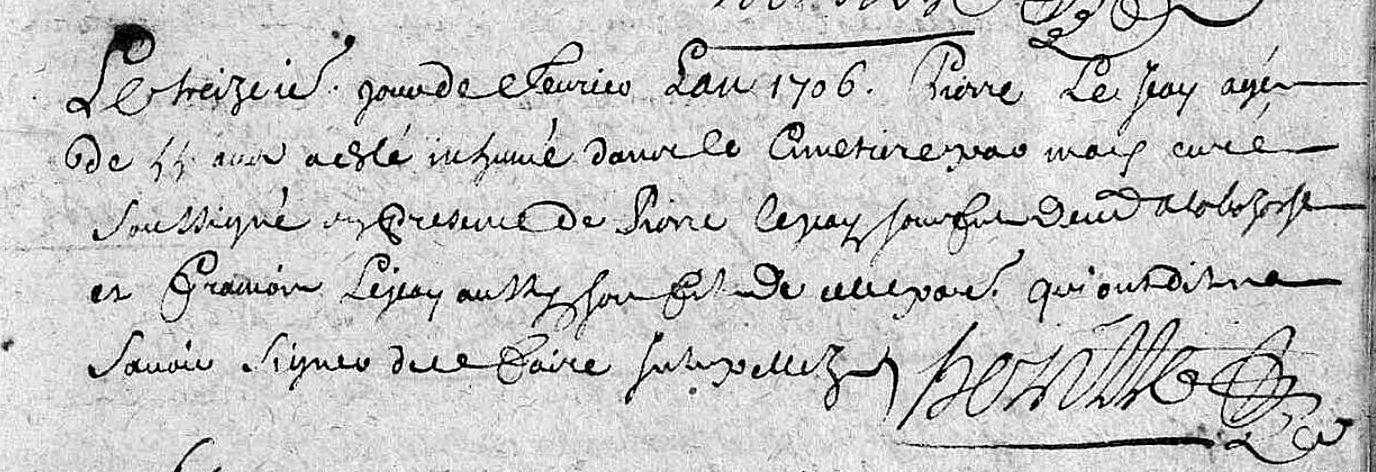 Le treizie. jour de feurier Lan 1706. Pierre Le Jeay agé
de 55 ans a esté inhumé dans le Cimetiere par moy curé
soussigné en presence de Pierre lejeay son fils
et Francois Lejeay aussy son fils de cette par. qui ont dit ne
sauoir signer de ce faire interpellez